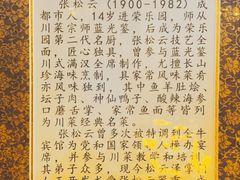 张松云(1900-1982)成
都市人，14岁进荣乐园，师从
川菜宗师蓝光鉴，后成为荣乐
园第二代名厨，张松云技艺全
面，匠心独具，曾参与蓝光鉴
川式满汉全席制作，尤擅长山
珍海味烹制，具家常风味菜肴
亦风味独到。其中鱼羊肚烩、
坛子肉、神仙鸭子、酸辣海参
口蘑舌掌、家常鱼面等分别
为川菜经典名菜。
张松云曾多次被特调到金牛
宾馆为党和国家领人操办宴
席，并参与川菜教
其弟子众多